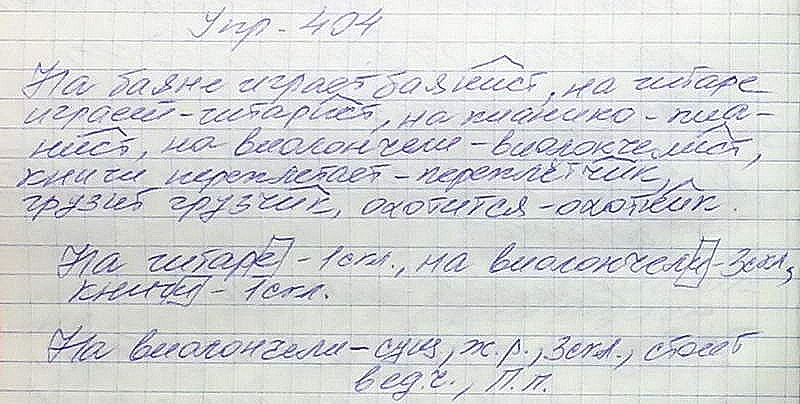 Упр. 404
На баяне играет баянист, на гитаре
играет - гитарист, на пианино - пиа-
нист, на виолончели - виолончелист,
книги переплетает - переплётчик,
грузит грузчик, охотится - охотник.
На гитаре - 1 скл., на виолончели - 3 скл.,
книги - 1 скл.
На виолончели - сущ., ж.р., 3 скл., стоит
в ед.ч., П.п.